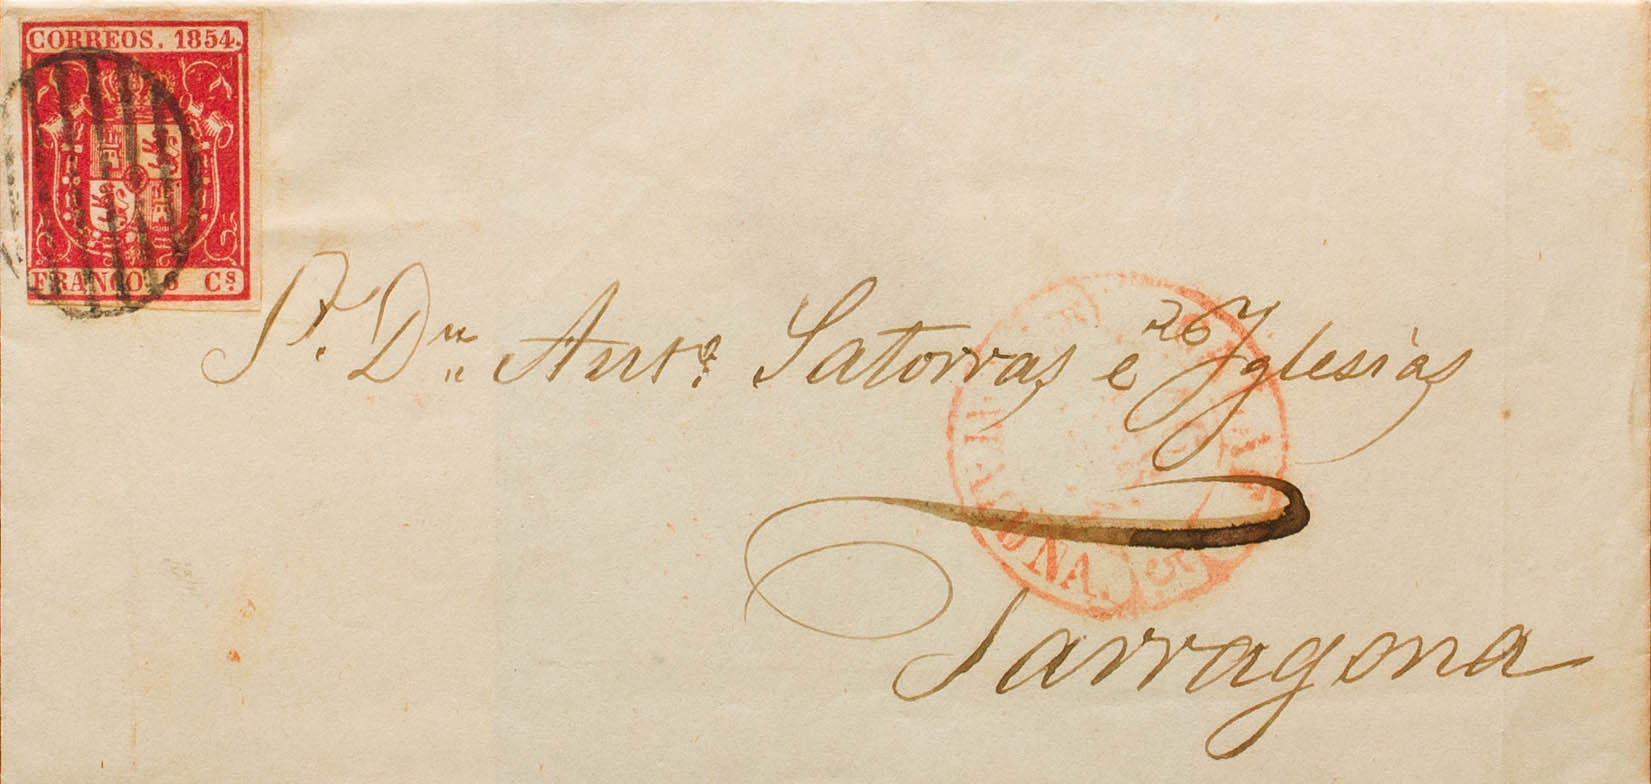 CORREOS. 1854.
FRANCO. 6 Cs.
Sr. Dn. Anto. Satorras e Yglesias
26
Tarragona